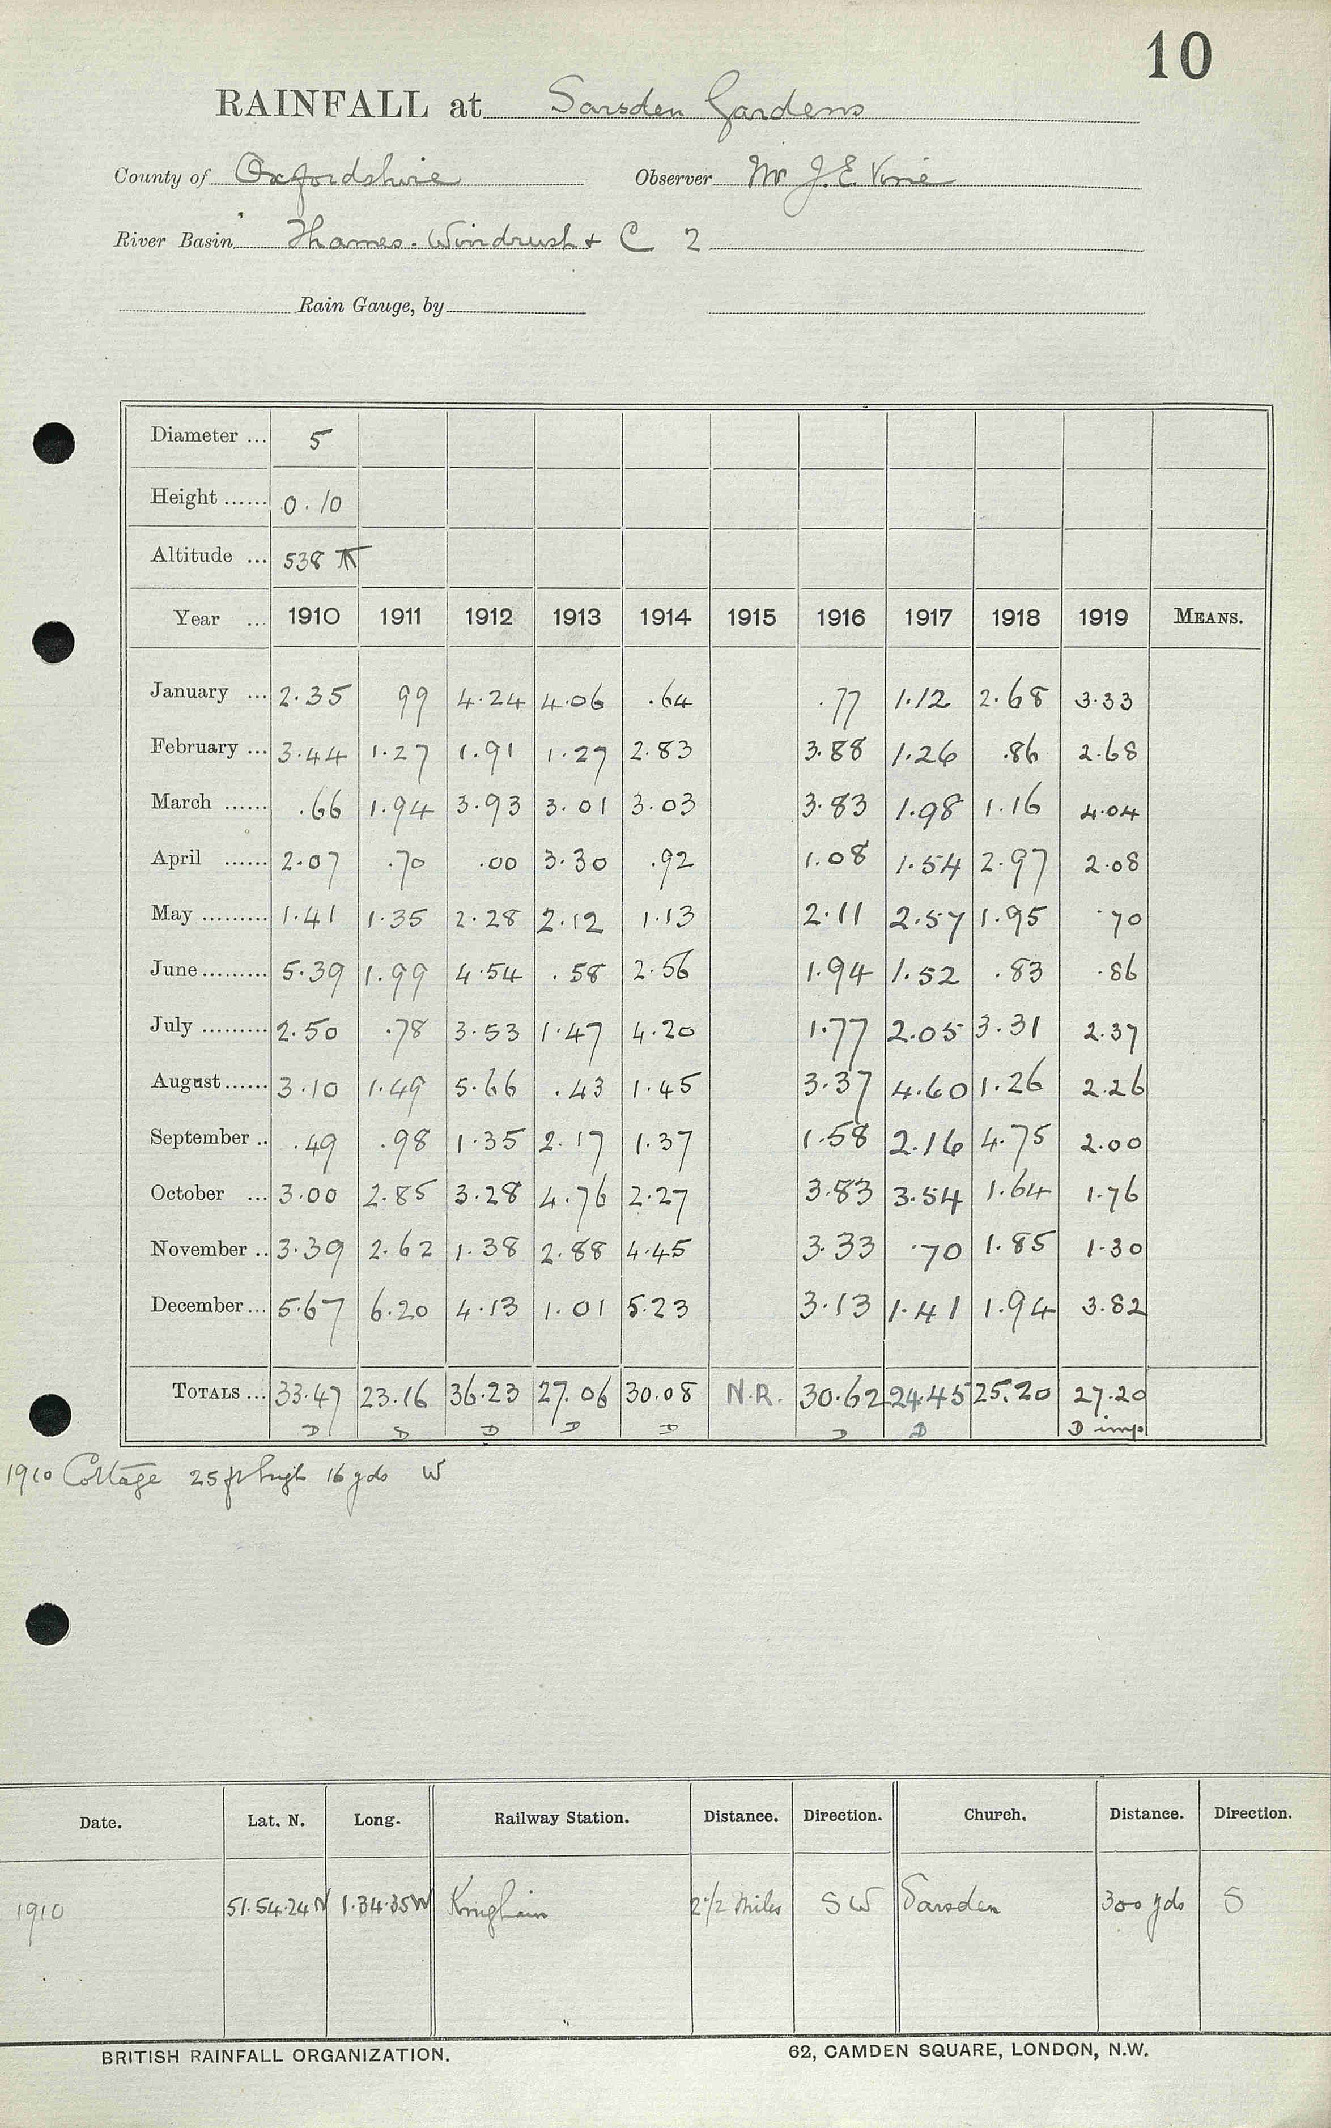 10
RAINFALL at Sarsden Gardens
County of Oxfordshire Observer Mr J. E. Vine
River Basin Thames. Windrush + C 2
Rain Gauge, by
Diameter ... 5
Height ...... 0.10
Altitude ... 538 ft
Year ... 1910 1911 1912 1913 1914 1915 1916 1917 1918 1919 MEANS.
January ... 2.35 99 4.24 4.06 .64 .77 1.12 2.68 3.33
February ... 3.44 1.27 1.91 1.27 2.83 3.88 1.26 .86 2.68
March ...... .66 1.94 3.93 3.01 3.03 3.83 1.98 1.16 4.04
April ...... 2.07 .70 .00 3.30 .92 1.08 1.54 2.97 2.08
May ......... 1.41 1.35 2.28 2.12 1.13 2.11 2.57 1.95 .70
June ......... 5.39 1.99 4.54 .58 2.56 1.94 1.52 .83 .86
July ......... 2.50 .78 3.53 1.47 4.20 1.77 2.05 3.31 2.37
August ...... 3.10 1.49 5.66 .43 1.45 3.37 4.60 1.26 2.26
September .. .49 .98 1.35 2.17 1.37 1.58 2.16 4.75 2.00
October ... 3.00 2.85 3.28 4.76 2.27 3.83 3.54 1.64 1.76
November .. 3.39 2.62 1.38 2.88 4.45 3.33 .70 1.85 1.30
December ... 5.67 6.20 4.13 1.01 5.23 3.13 1.41 1.94 3.82
TOTALS ... 33.47 23.16 36.23 27.06 30.08 N.R. 30.62 24.45 25.20 27.20
D D D D D D D D imp
1910 Cottage 25 ft high 16 yds W
Date. Lat. N. Long. Railway Station. Distance. Direction. Church. Distance. Direction.
1910 51.54.24 N 1.34.35 W Kingham 2 1/2 Miles SW Sarsden 300 yds S
BRITISH RAINFALL ORGANIZATION. 62, CAMDEN SQUARE, LONDON, N.W.